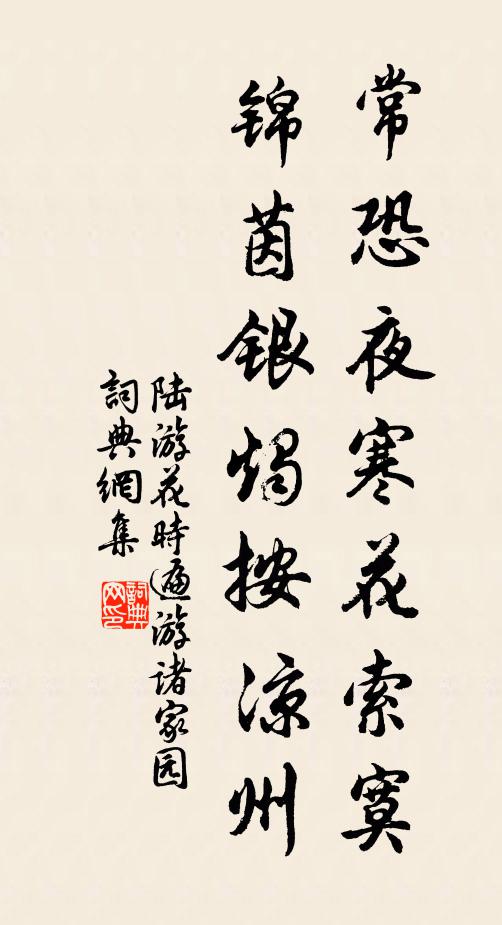 常恐夜寒花索寞
锦茵银烛按凉州
陆游花时遍游诸家园
詞典網集
詞典网印